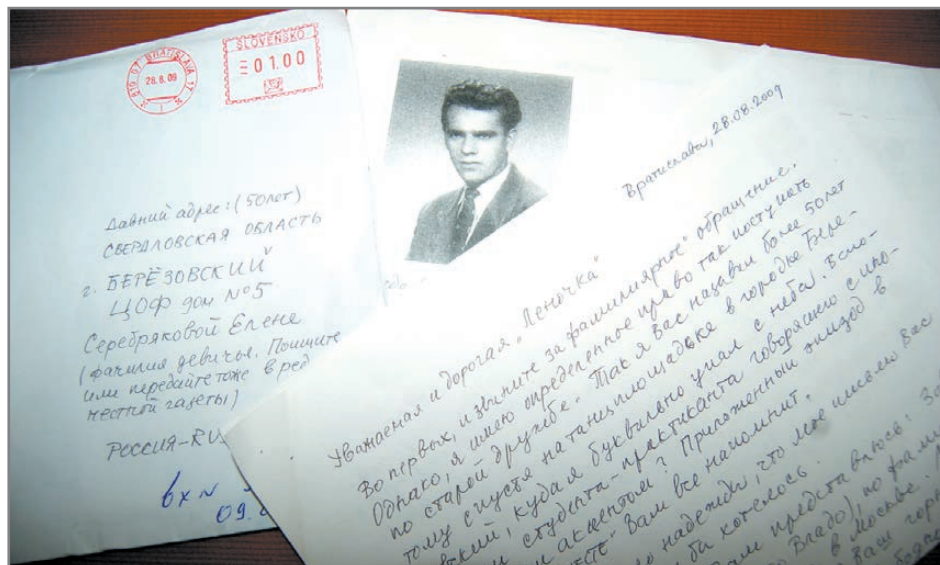 SLOVENSKO
01.00
BRATISLAVA 17
28.8.09
Давний адрес: (50 лет)
СВЕРДЛОВСКАЯ ОБЛАСТЬ
г. БЕРЁЗОВСКИЙ
ЦОФ дом №5
Серебряковой Елене
(фамилия девичье. Поищите
или передайте тоже в ред
местной газеты)
РОССИЯ-RU
вх N
09.
Братислава, 28.08.2009
Уважаемая и дорогая „Леночка"
Во первых, извините за фамилиярное" обращение.
Однако, я имею определенное право так поступать
по старой дружбе. Так я Вас называл более 50 лет
тому спустя на танцплощадке в городке Бере-
вский, куда я буквально упал с неба. Вспо-
студента-практиканта говорящно с ино-
акцентом? Приложенный эпизод в
Вам все напомнит.
надежду, что мое письмо Вас
бы хотелось.
представлюсь: За
Владо), по фами
в Москве.
Ваш гор